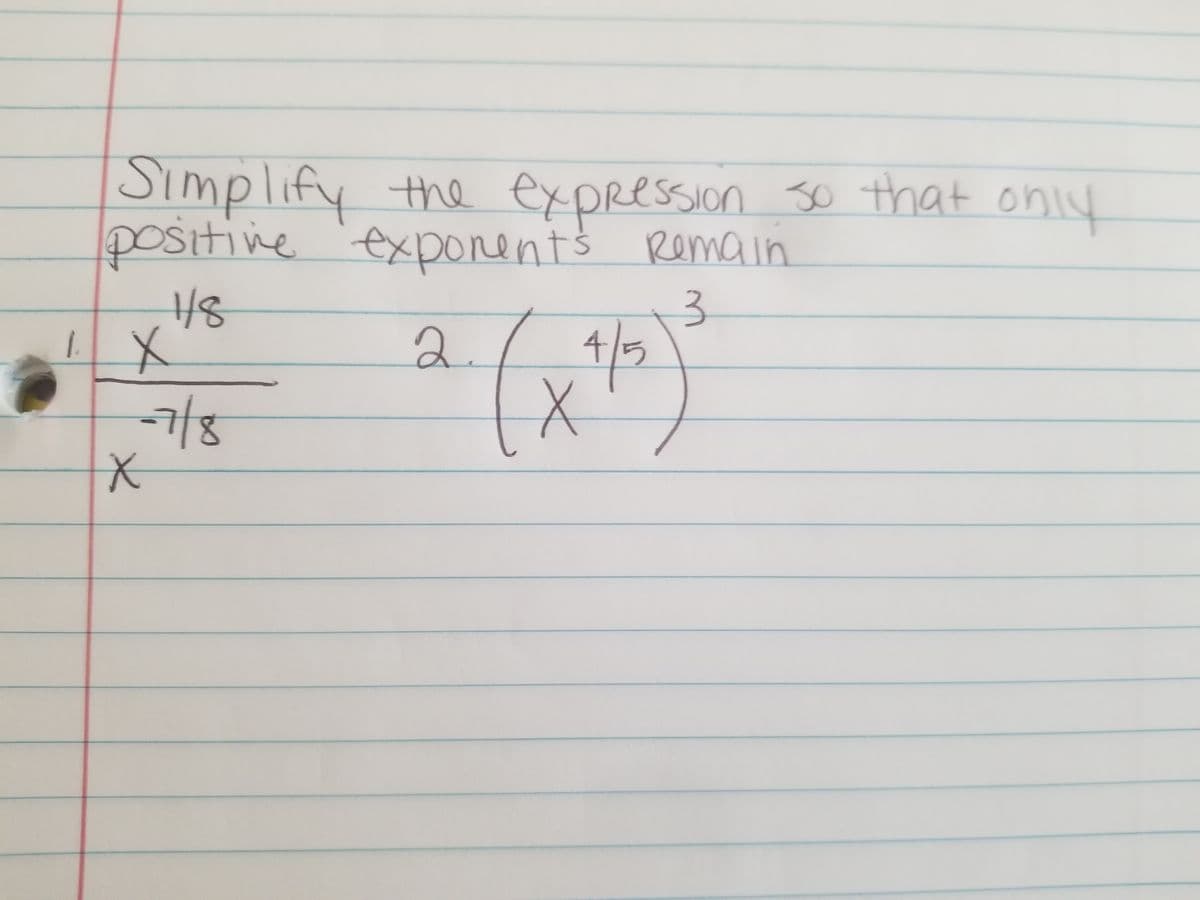 Simplify the expression so that only
positive exponents Remain
1. x^1/8 / x^-7/8
2. (x^4/5)^3